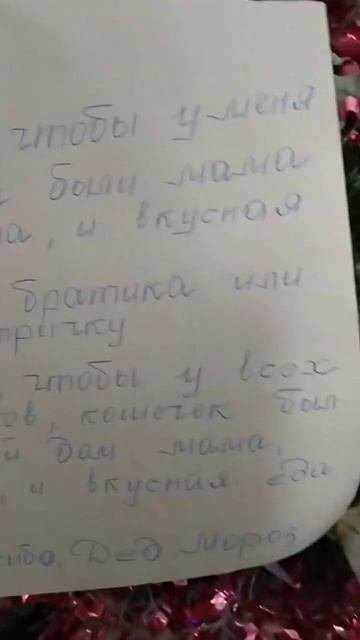 чтобы у меня
были мама
а, и вкусная
братика или
тричку
чтобы у всех
ов, кошечек был
й дом, мама,
, и вкусная еда
сибо. Дед Мороз